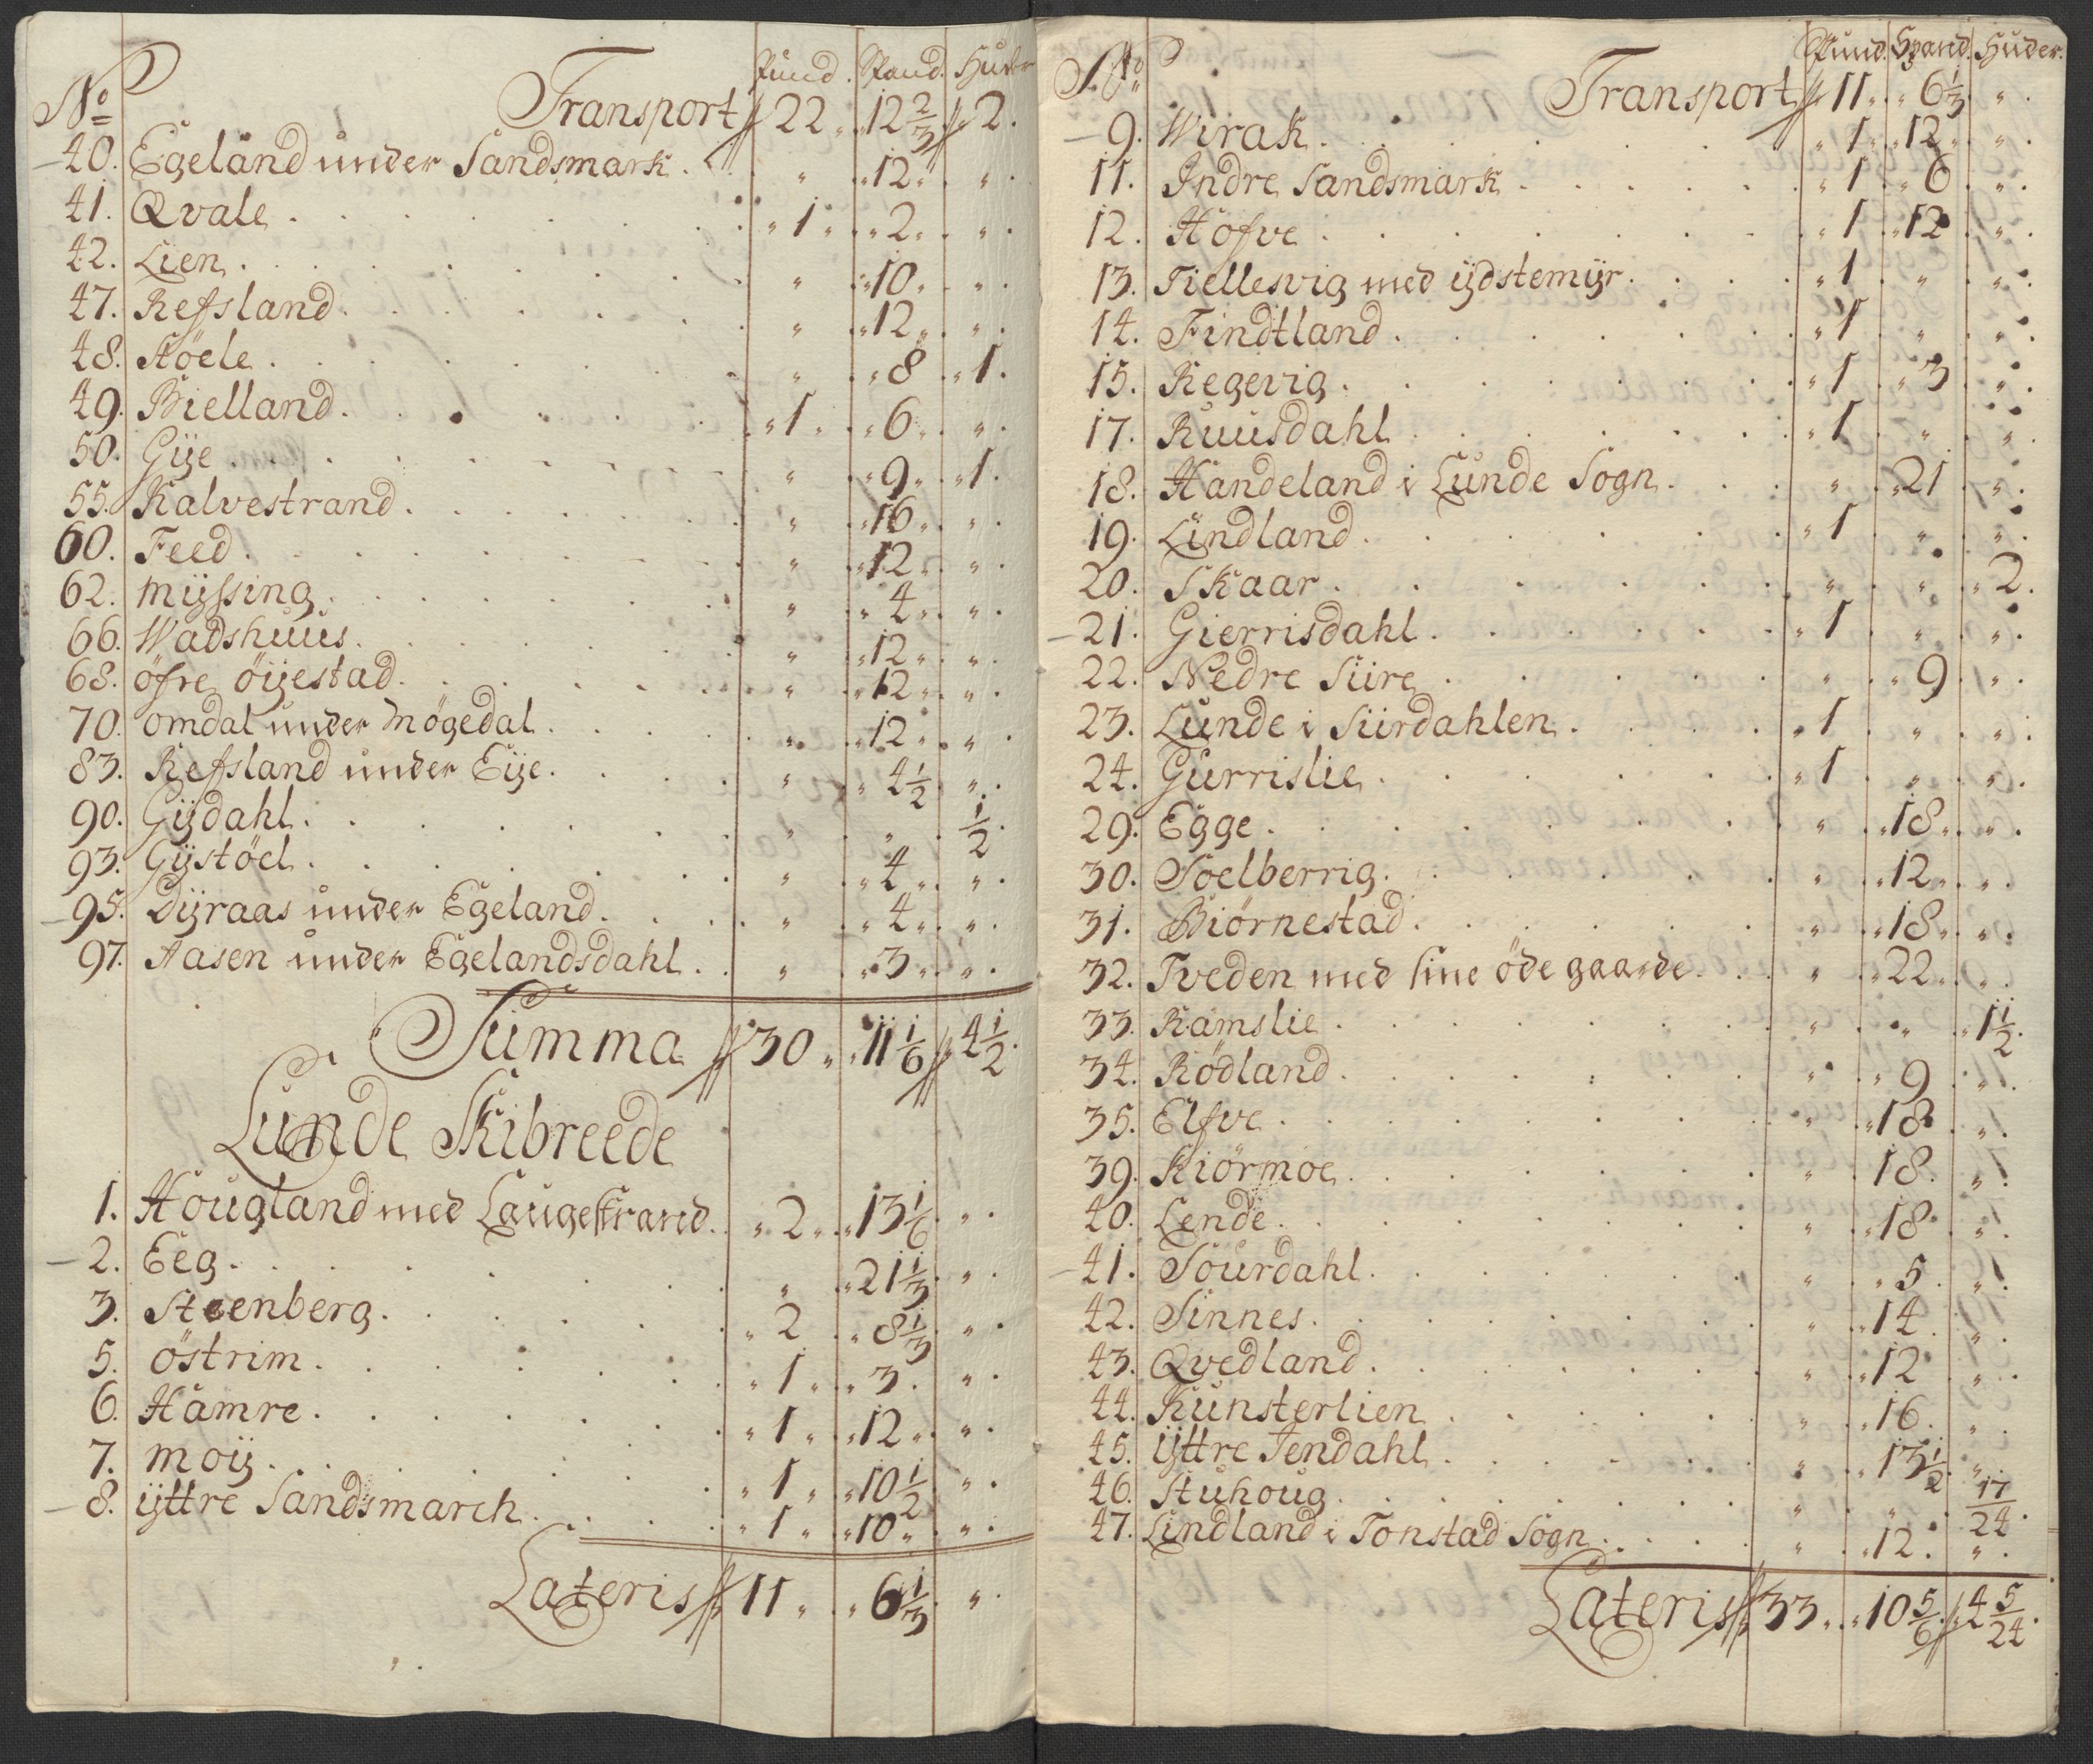 Pund. Spand. Huder
No Transport 22 „ 12 2/3 2.
40. Egeland under Sandsmark. „ 12 „ „
41. Qvale. 1 „ 2 „ „
42. Lien. „ 10 „ „
47. Refsland. „ 12 „ „
48. Høele. „ 8 „ 1.
49. Bielland. 1 „ 6 „ „
50. Gÿe. „ 9 „ 1.
55. Kalvestrand. „ 16 „ „
60. Feed. „ 12 „ „
62. Mÿssing. „ 4 „ „
66. Wadshuus. „ 12 „ „
68. øfre øÿestad. „ 12 „ „
70. omdal under Møgedal. „ 12 „ „
83. Refsland under Eÿe. „ 4 1/2 „
90. Gÿdahl. „ „ 1/2.
93. Gÿstøel. „ 4 „ „
95. Dÿraas under Egeland. „ 4 „ „
97. Aasen under Egelandsdahl. „ 3 „ „
Summa 30 „ 11 1/6 4 1/2.
Lunde Skibreede
1. Hougland med Laugestrand. 2 „ 13 1/6 „
2. Eeg. „ 21 1/3 „
3. Steenberg. 2 „ 8 1/3 „
5. østrim. 1 „ 3 „
6. Hamre. 1 „ 12 „ „
7. Moÿ. 1 „ 10 1/2 „
8. ÿttre Sandsmarch. 1 „ 10 „ „
Lateris 11 „ 6 1/3 „
Pund. Spand. Huder.
No Transport 11 „ 6 1/3 „
9. Wirak. 1 „ 12 „ „
11. Indre Sandsmark. 1 „ 6 „
12. Hofve. 1 „ 12 „
13. Fiellesvig med ÿdstemÿr. 1 „ „
14. Findtland. 1 „ „
15. Regevig. 1 „ 3 „
17. Ruusdahl. 1 „ „
18. Handeland i Lunde Sogn. „ 21 „
19. Lindland. 1 „ „
20. Skaar. „ „ 2.
21. Gierrisdahl. 1 „ „
22. Nedre Siire. „ 9 „
23. Lunde i Siirdahlen. 1 „ „
24. Gurrislie. 1 „ „
29. Egge. „ 18 „ „
30. Soelberrig. „ 12 „ „
31. Biørnestad. „ 18 „ „
32. Tveden med sine øde gaarde. „ 22 „ „
33. Ramslie. „ „ 1 1/2.
34. Rødland. „ 9 „
35. Elfve. „ 18 „
39. Kiørmoe. „ 18 „
40. Lende. „ 18 „
41. Sourdahl. „ 5 „
42. Sinnes. „ 14 „
43. Qvedland. „ 12 „
44. Kunsterlien. „ 16 „
45. ÿttre Jendahl. „ 13 1/2 „
46. Stuhoug. „ „ 17/24.
47. Lindland i Tonstad Sogn. „ 12 „
Lateris 33 „ 10 5/6 4 5/24.